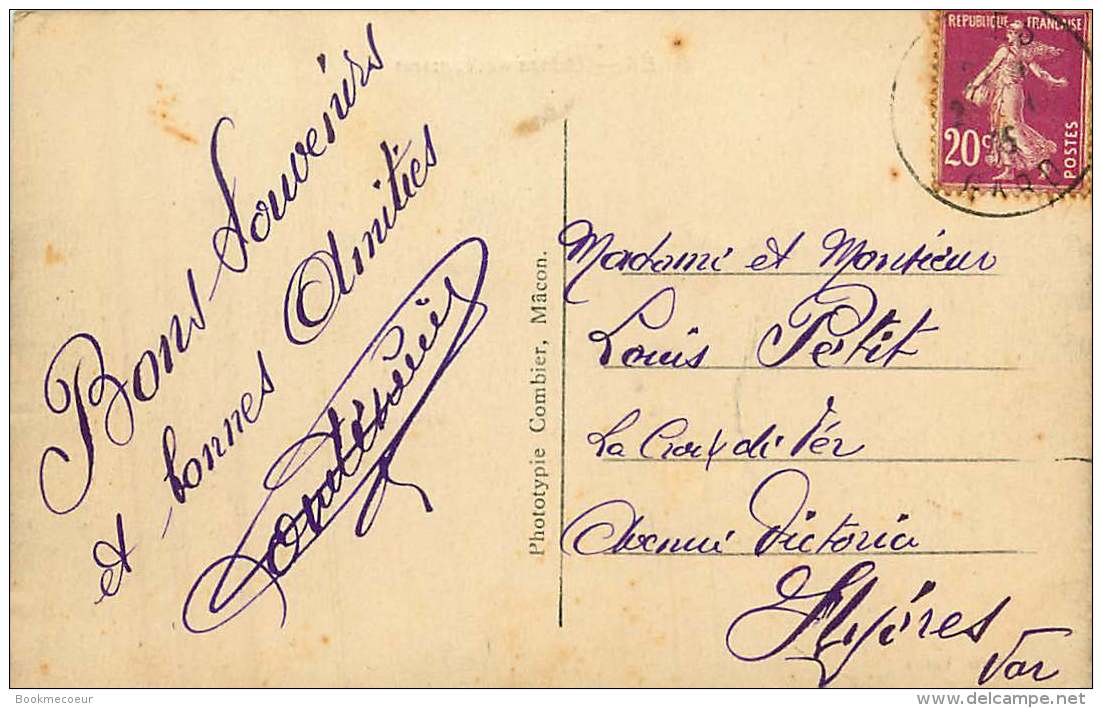 Bons Souvenirs
et bonnes Amitiés
Phototypie Combier, Mâcon.
REPUBLIQUE FRANÇAISE
20c
POSTES
GARD
Madame et Monsieur
Louis Petit
La Croix de Fer
Avenue Victoria
Hyères
Var
Bookmecoeur
http://www.delcampe.net